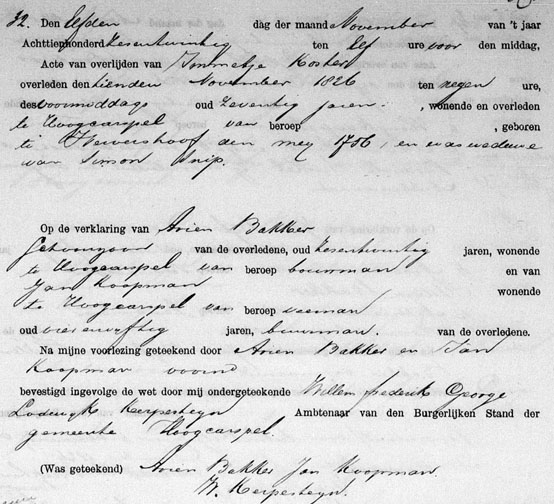 32. Den Elfden dag der maand November van 't jaar
Achttienhonderd Zesentwintig ten Elf ure voor den middag,
Acte van overlijden van Koster
overleden den tienden November 1826 ten negen ure,
des voormiddags oud Zeventig jaren , wonende en overleden
te Hoogcarspel van beroep , geboren
te den mey 1756, en was weduwe
van Simon Snip.
Op de verklaring van Arien Bakker
Schoonzoon van de overledene, oud Zesentwintig jaren, wonende
te Hoogcarspel van beroep bouwman en van
Jan Koopman wonende
te Hoogcarspel van beroep veeman
oud vierenvyftig jaren, buurman. van de overledene.
Na mijne voorlezing geteekend door Arien Bakker en Jan
Koopman voornd
bevestigd ingevolge de wet door mij ondergeteekende Willem frederik George
Lodewyk Kerpesteyn Ambtenaar van den Burgerlijken Stand der
gemeente Hoogcarspel
(Was geteekend) Arien Bakker Jan Koopman
W. Kerpesteyn.